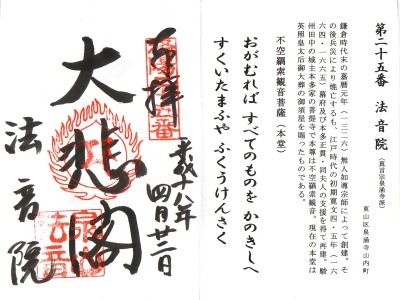 第二十五番 法音院 (真言宗泉涌寺派)
東山区泉涌寺山内町
鎌倉時代末の嘉暦元年(一三二六)無人如導宗師によって創建。そ
の後兵災により焼亡するも、江戸時代の初期寛文四・五年(一六
六四・一六六五)幕府及び本多正貫・同夫人の支援を得て再建。駿
州田中の城主本多家の菩提寺で本尊は不空羂索観音。現在の本堂は
英照皇太后御大葬の御須屋を賜ったものである。
不空羂索観音菩薩(本堂)
おがむれば すべてのものを かのきしへ
すくいたまふや ふくうけんさく
奉拝
平成十八年
四月廿二日
大悲閣
法音院